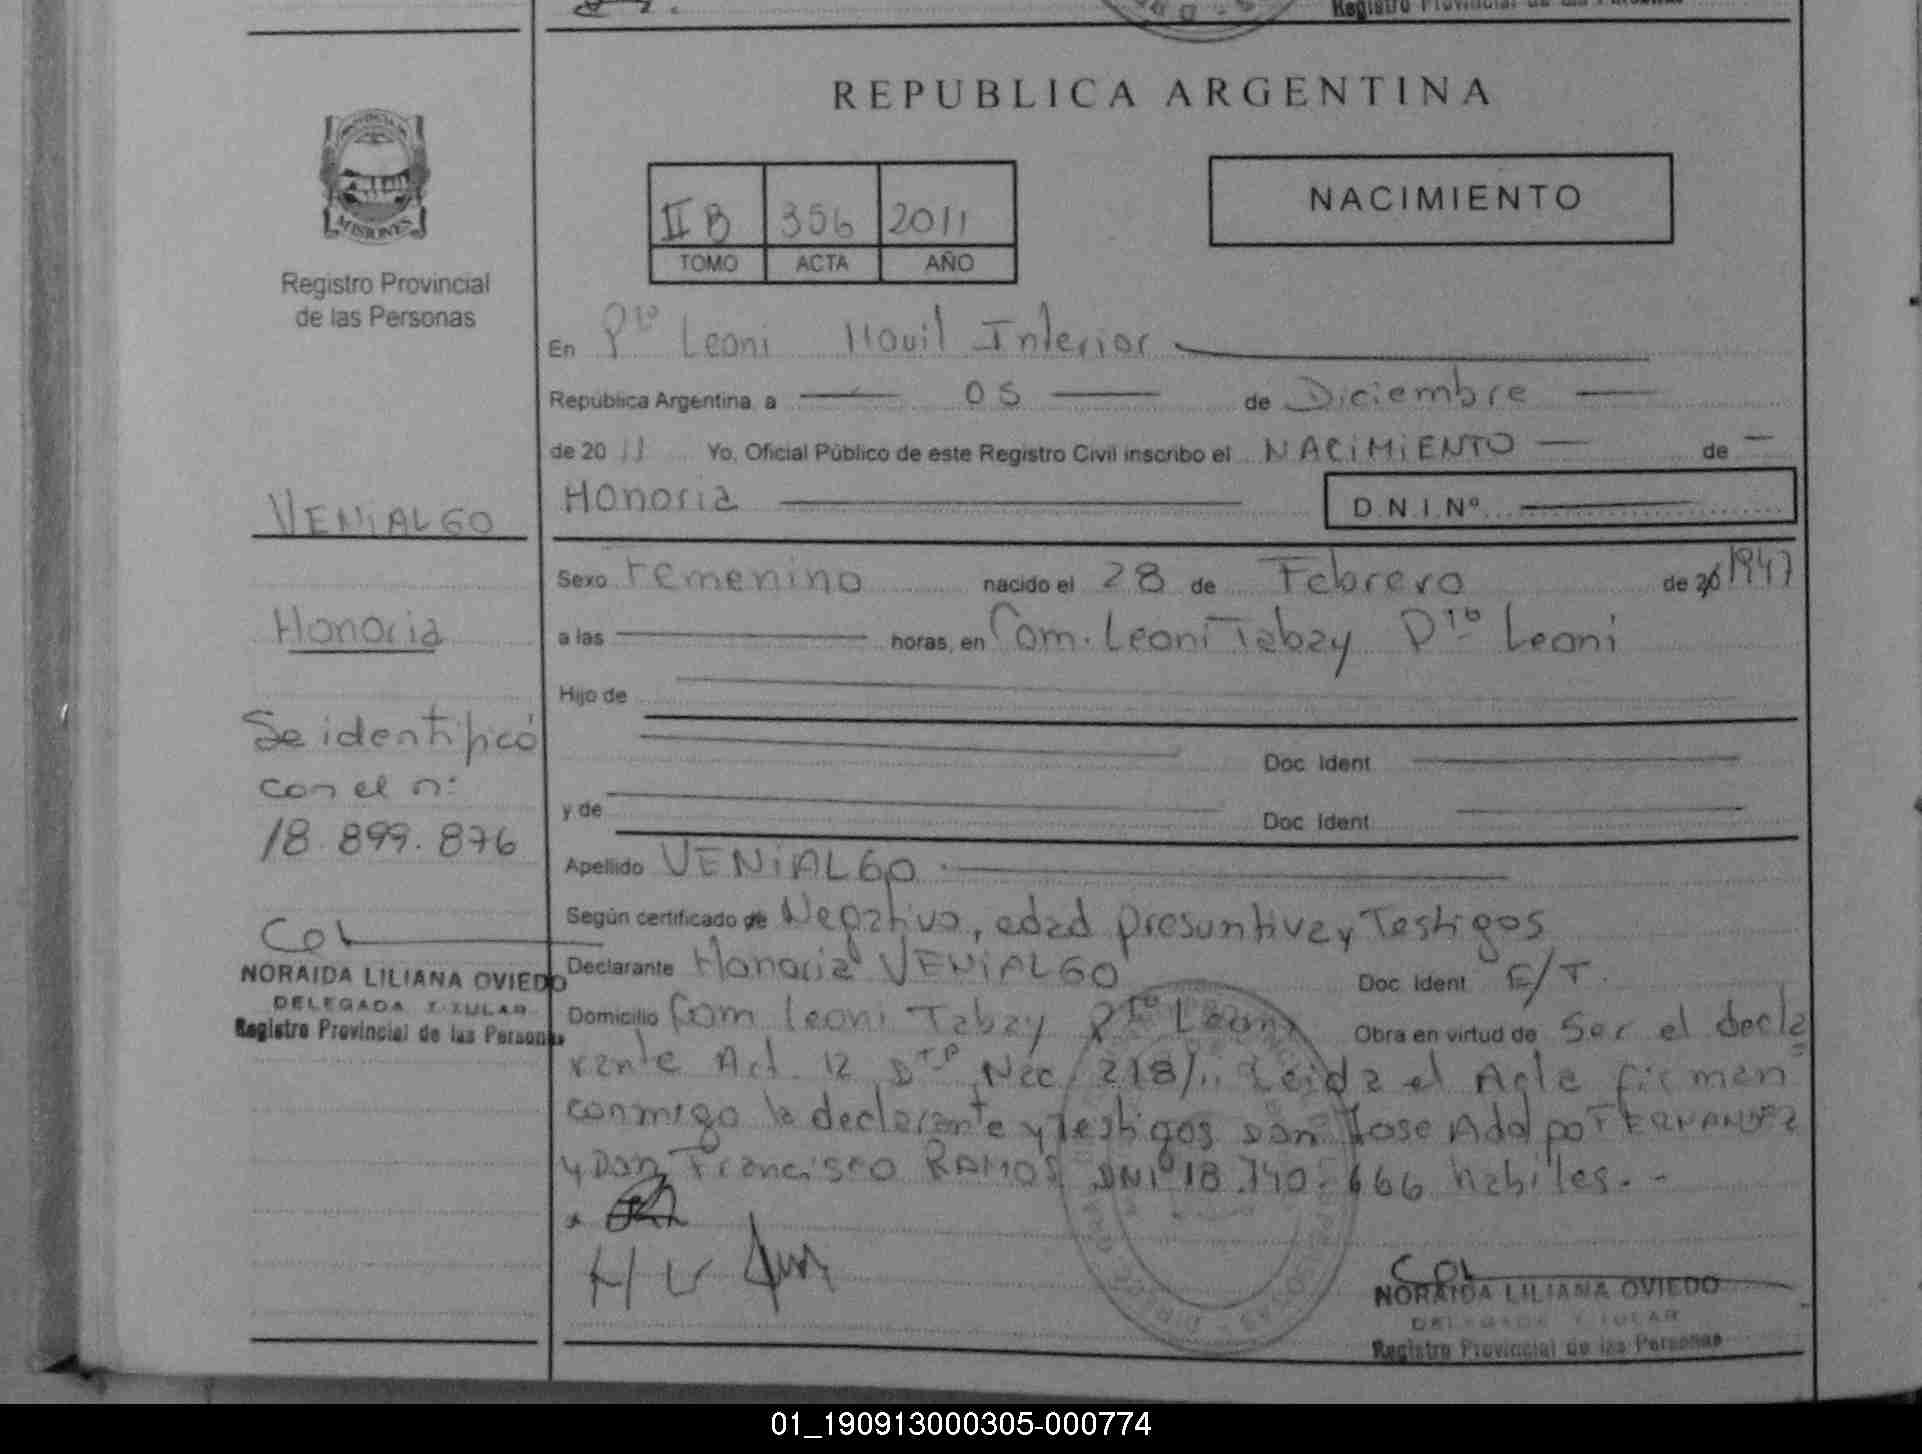 Registro Provincial de las Personas
REPUBLICA ARGENTINA
MISIONES
Registro Provincial
de las Personas
II B 356 2011
TOMO ACTA AÑO
NACIMIENTO
En Pto Leoni Movil Interior
República Argentina a 05 de Diciembre
de 2011 Yo, Oficial Público de este Registro Civil inscribo el NACIMIENTO de
Honoria D.N.I.Nº
VENIALGO
Sexo Femenino nacido el 28 de Febrero de 20 1947
Honoria
a las horas, en Com. Leoni Tabay Pto Leoni
Hijo de
Se identificó
con el n:
18.899.876
Doc. Ident
y de Doc. Ident
Apellido VENIALGO
Según certificado de Negativo, edad presuntiva y Testigos
Declarante Honoria VENIALGO Doc. Ident E/T.
NORAIDA LILIANA OVIEDO
DELEGADA TITULAR
Registro Provincial de las Personas
Domicilio Com Leoni Tabay Pto Leoni Obra en virtud de Ser el decla
rante Act. 12 Dto Nac 218/.. Leida el Acta firman
conmigo la declarante y Testigos Don Jose Adolfo FERNANDEZ
y Don Francisco RAMOS DNI 18.740.666 habiles.-
H V
NORAIDA LILIANA OVIEDO
DELEGADA TITULAR
Registro Provincial de las Personas
01_190913000305-000774